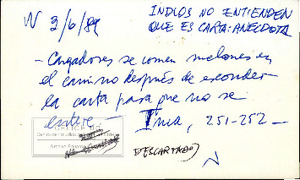 N 3/6/89
INDIOS NO ENTIENDEN
QUE ES CARTA: ANÉCDOTA
- Cargadores se comen melones en
el camino después de esconder
la carta para que no se
entere - Inca, 251-252 -
DESCARTADO
N